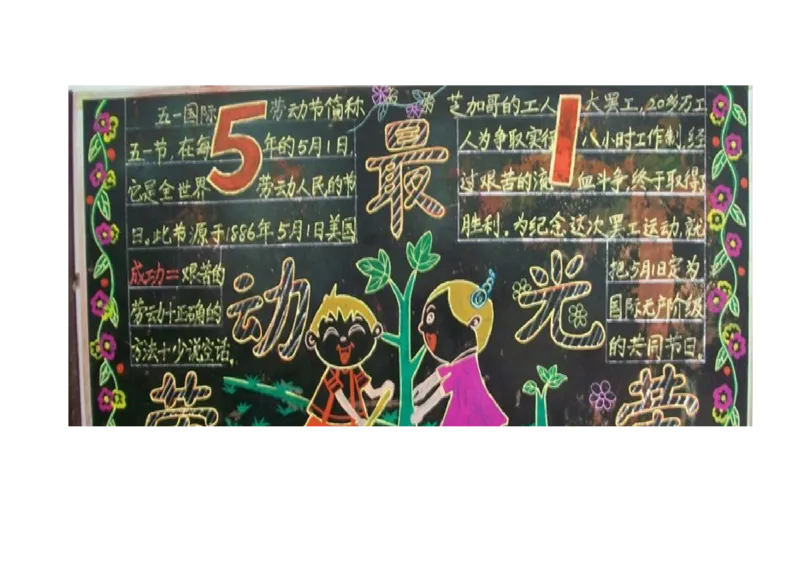 五一国际劳动节简称
五一节,在每年的5月1日。
它是全世界劳动人民的节
日。此节源于1886年5月1日美国
芝加哥的工人大罢工,20多万工
人为争取实行八小时工作制,经
过艰苦的流血斗争,终于取得
胜利。为纪念这次罢工运动,就
把5月1日定为
国际无产阶级
的共同节日。
5 1
成功=艰苦的
劳动+正确的
方法+少说空话。
劳动最光荣